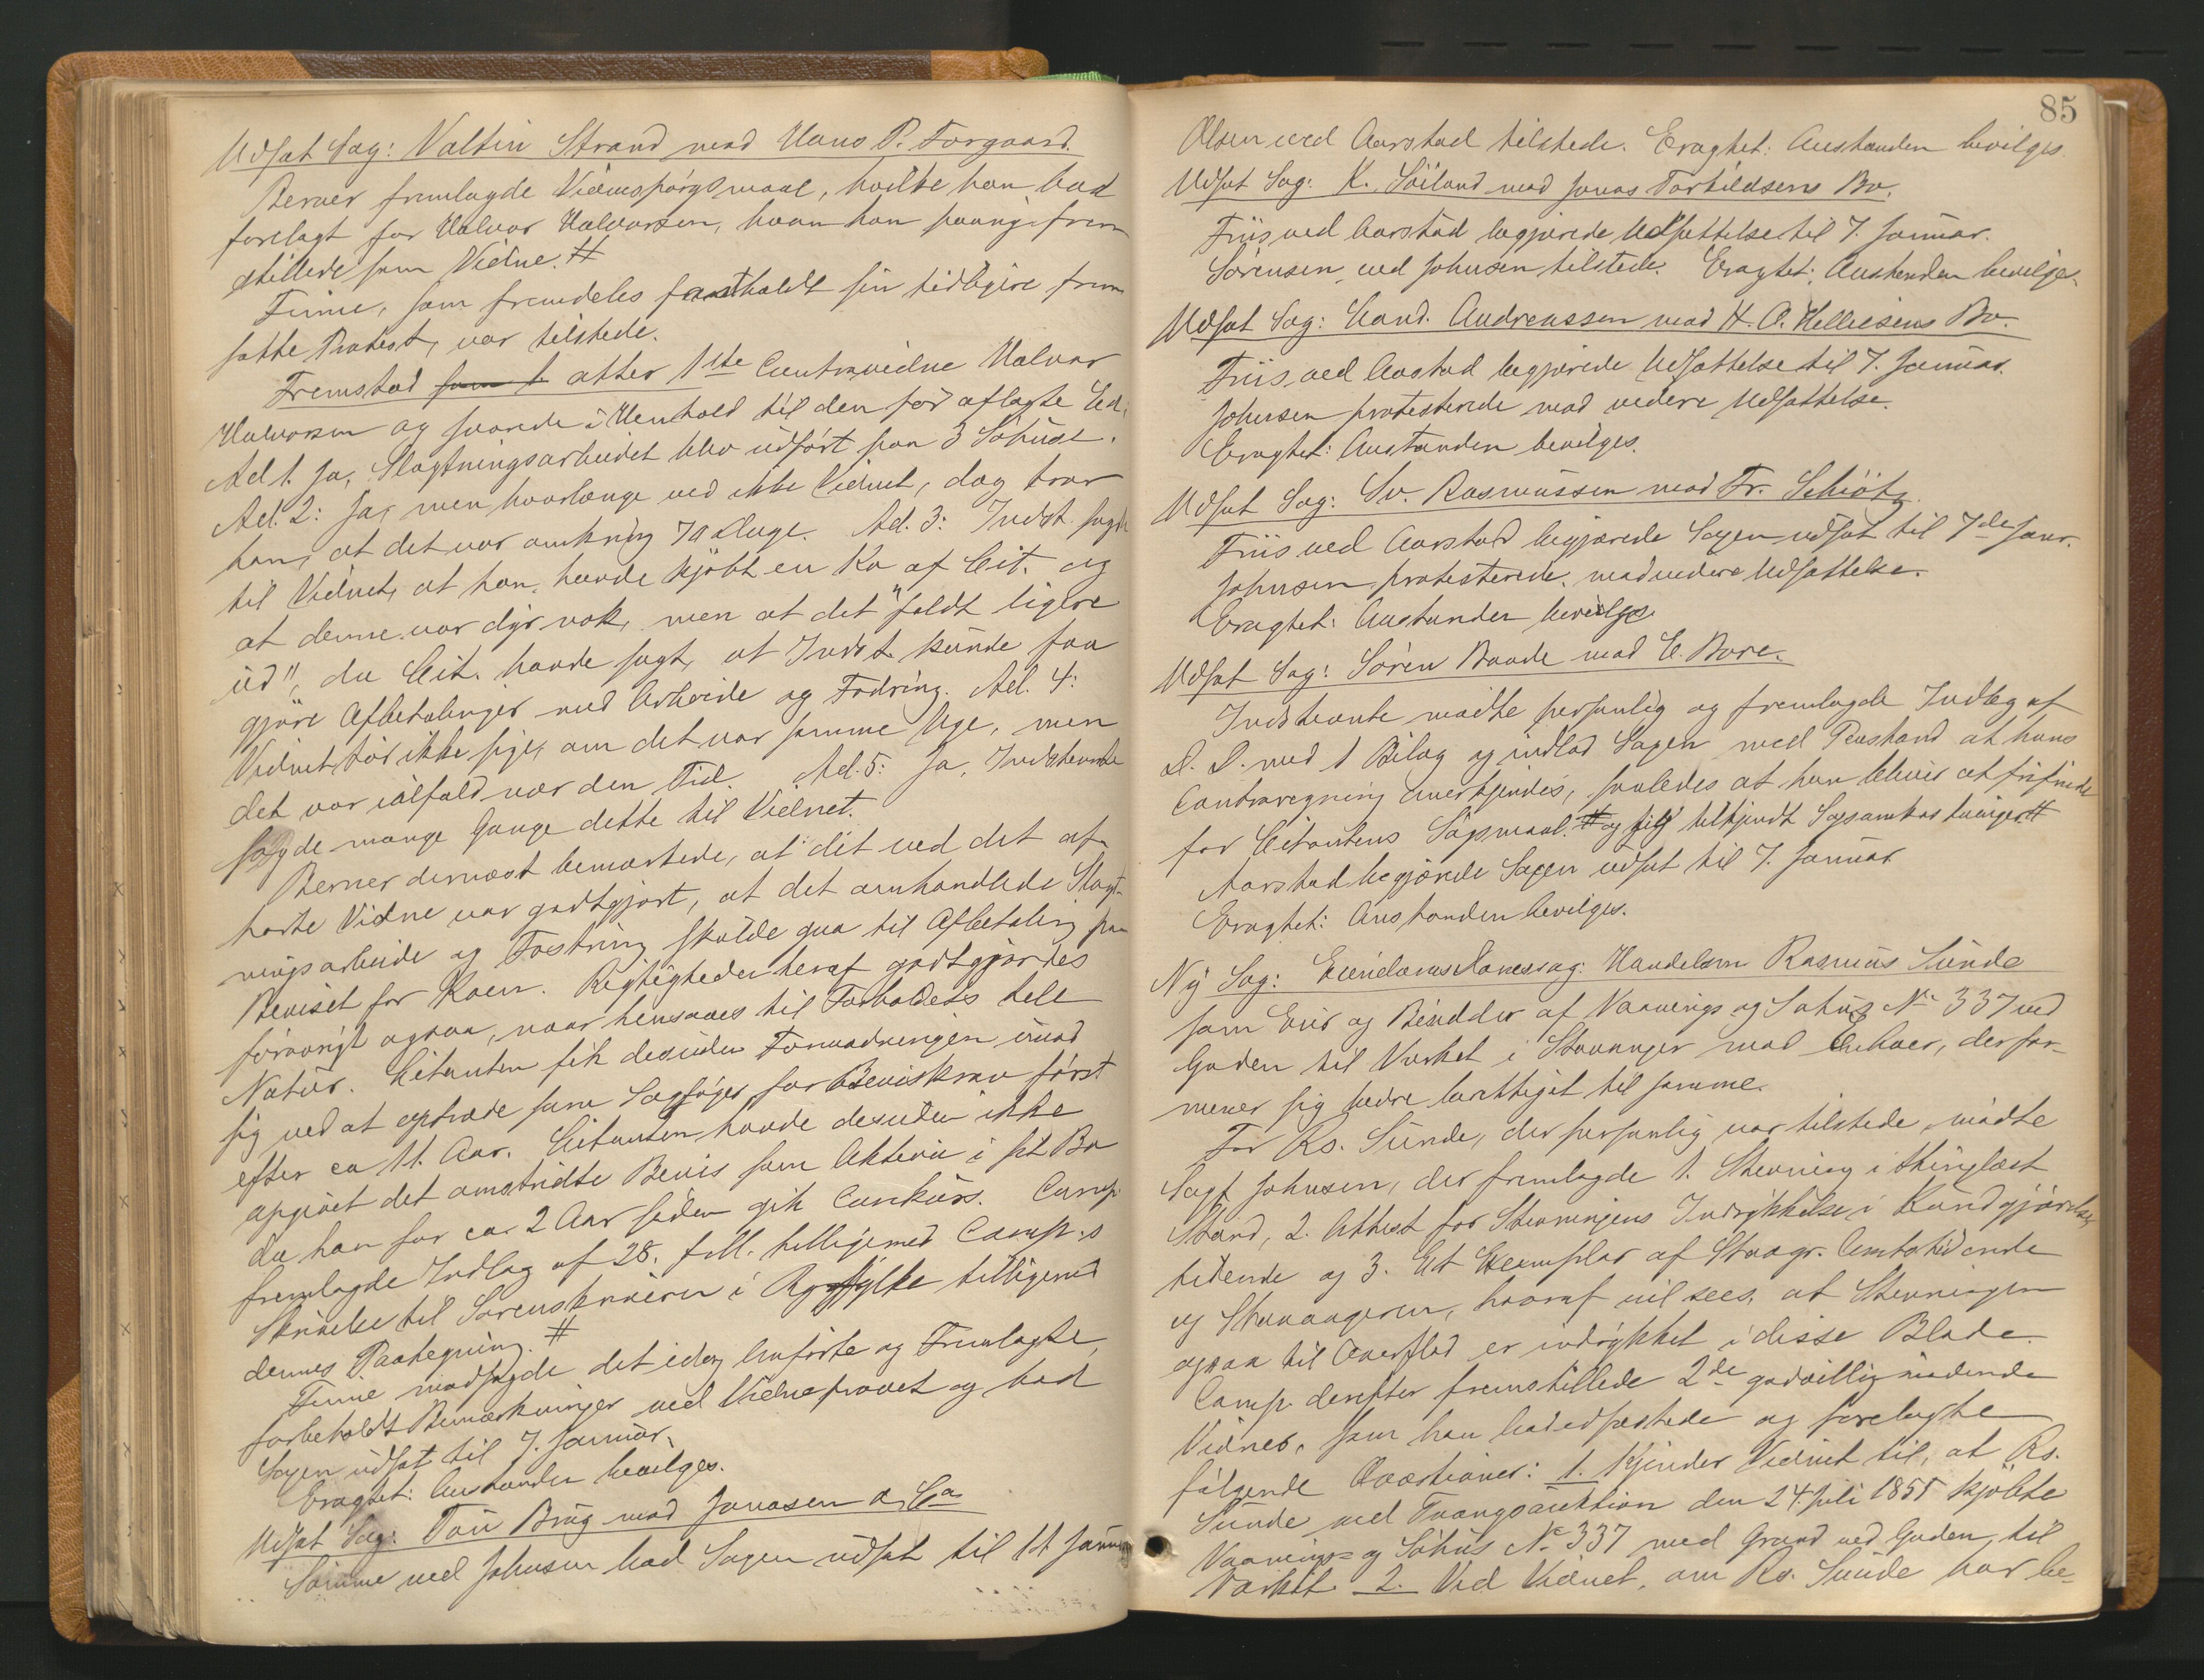 Udsat Sag: Valtin Strand mod Hans P. Torgaard.
Berner fremlagde Vidnespørgsmaal, hvilke han bad
forelagt for Halvor Halvorsen, hvem han paany frem
stillede som Vidne. #
Finne, som fremdeles fastholdt sin tidligere frem
satte Protest, var tilstede.
Fremstod som 1. atter 1ste Contravidne Halvor
Halvorsen og svarede i Henhold til den før aflagte Ed,
Ad 1. Ja, Slagtningsarbeidet blev udført paa 3 Søhuse.
Ad. 2: Ja, men hvorlænge ved ikke Vidnet, dog tror
han, at det var omkring 7 a 8 Uge. Ad. 3: Indst. sagde
til Vidnet, at han havde kjøbt en Ko af Cit. og
at denne var dyr nok, men at det "faldt ligere
ud", da Cit. havde sagt, at Indst. kunde faa
gjøre Afbetalinger med Arbeide og Fodring. Ad. 4:
Vidnet tør ikke sige, om det var samme Uge, men
det var ialfald nær den Tid. Ad. 5: Ja, Indstevnte
sagde mange Gange dette til Vidnet.
Berner dernæst bemærkede, at det ved det af-
hørte Vidne var godtgjort, at det omhandlede Slagt-
ningsarbeide og Fostring skulde gaa til Afbetaling paa
Beviset for Koen. Rigtigheden heraf godtgjordes
forøvrigt ogsaa, naar hensaaes til Forholdets hele
Natur. Citanten fik desuden Formodningen imod
sig ved at optræde som Sagsøger for Beviskrav først
efter ca 11. Aar. Citanten havde desuden ikke
opgivet det omstridte Bevis som Aktivum i sit Bo
da han for ca. 2 Aar siden gik Concurs. Comp.
fremlagde Indlæg af 28. f. M. tilligemed Comp.s
Skrivelse til Sorenskriveren i Ryfylke tilligemed
dennes Paategning. #
Finne modsagde det idag Anførte og Fremlagte,
forbeholdt Bemærkninger ved Vidneprovet og bad
Sagen udsat til 7. Januar.
Eragtet: Anstanden bevilges.
Udsat Sag: Tau Brug mod Jonasen & Co
Sømme ved Johnsen bad Sagen udsat til 14 Januar
85
Olsen ved Aarstad tilstede. Eragtet: Anstanden bevilges.
Udsat Sag: K. Söiland mod Jonas Torkildsens Bo.
Friis ved Aarstad begjærede Udsættelse til 7. Januar.
Sörensen ved Johnsen tilstede. Eragtet: Anstanden bevilges.
Udsat Sag: Cand. Andreassen mod H. O. Helliesens Bo.
Friis ved Aarstad begjærede Udsættelse til 7. Januar.
Johnsen protesterede mod videre Udsættelse.
Eragtet: Anstanden bevilges.
Udsat Sag: Sv. Rasmussen mod Fr. Schiötz.
Friis ved Aarstad begjærede Sagen udsat til 7de Janr.
Johnsen protesterede mod videre Udsættelse.
Eragtet: Anstanden bevilges
Udsat Sag: Sören Baade mod E. Bore.
Indstevnte mødte personlig og fremlagde Indlæg af
D. D. med 1 Bilag og indlod Sagen med Paastand at hans
Contraregning anerkjendes, saaledes at han bliver at frifinde
for Citantens Søgsmaal. # og sig tilkjendt Sagsomkostninger. #
Aarstad begjærede Sagen udsat til 7. Januar
Eragtet: Anstanden bevilges.
Ny Sag: Eiendomsdomssag: Handelsm. Rasmus Sunde
som Eier og Besidder af Vaanings og Søhus No 337 ved
Gaden til Værket i Stavanger mod Enhver, der for-
mener sig bedre berettiget til samme.
For Rs. Sunde, der personlig var tilstede, mødte
Sagf. Johnsen, der fremlagde 1. Stevning i thinglæst
Stand, 2. Attest for Stevningens Indrykkelse i Kundgjørelses
tidende og 3. Et Exemplar af Stavgr. Amtstidende
og Stavangeren, hvoraf vil sees, at Stevningen
ogsaa til Overflod er indrykket i disse Blade.
Comp. derefter fremstillede 2de godvillig mødende
Vidner, som han bad edfæstede og forelagte
følgende Qvæstioner: 1. Kjender Vidnet til, at Rs.
Sunde ved Tvangsauktion den 24. Juli 1855 kjøbte
Vaanings- og Søhus No 337 med Grund ved Gaden til
Værket. 2. Ved Vidnet, om Rs. Sunde har be-